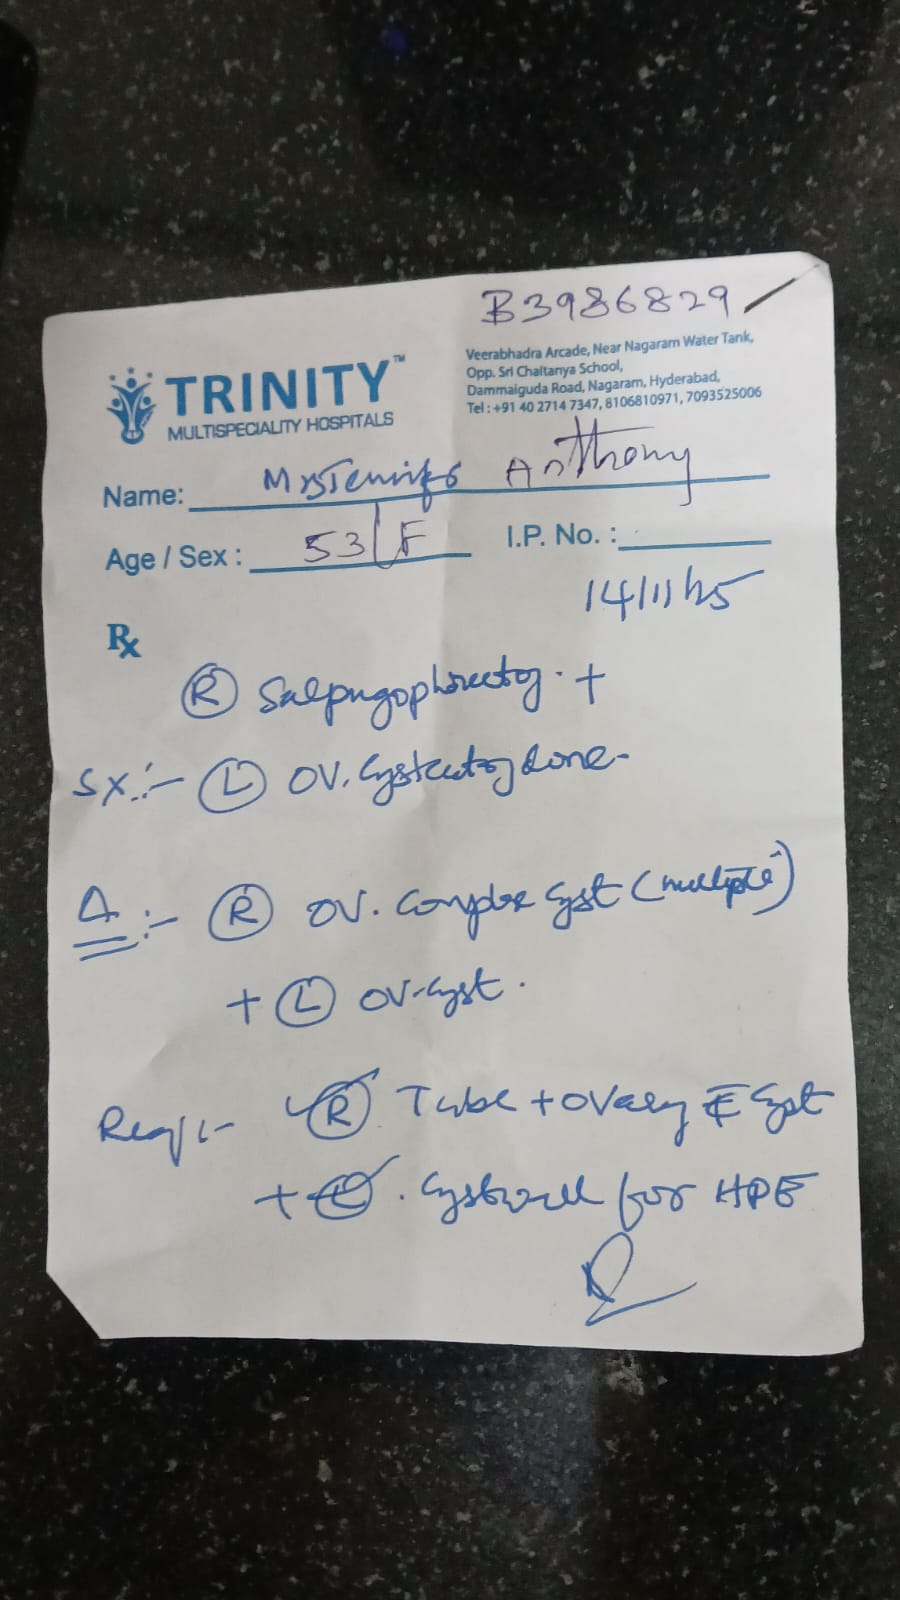 B3986829
TRINITY™
MULTISPECIALITY HOSPITALS
Veerabhadra Arcade, Near Nagaram Water Tank,
Opp. Sri Chaitanya School,
Dammaiguda Road, Nagaram, Hyderabad,
Tel : +91 40 2714 7347, 8106810971, 7093525006
Name: Mrs Anthony
Age / Sex : 53/F
I.P. No. :
14/11/25
Rx
(R) Salpingophorectomy +
SX:- (L) OV. Cystectomy done-
Δ:- (R) OV. Complex Cyst (multiple)
+ (L) OV-Cyst.
Req:- (R) Tube + Ovary c̄ Cyst
+ (L). Cystwall for HPE